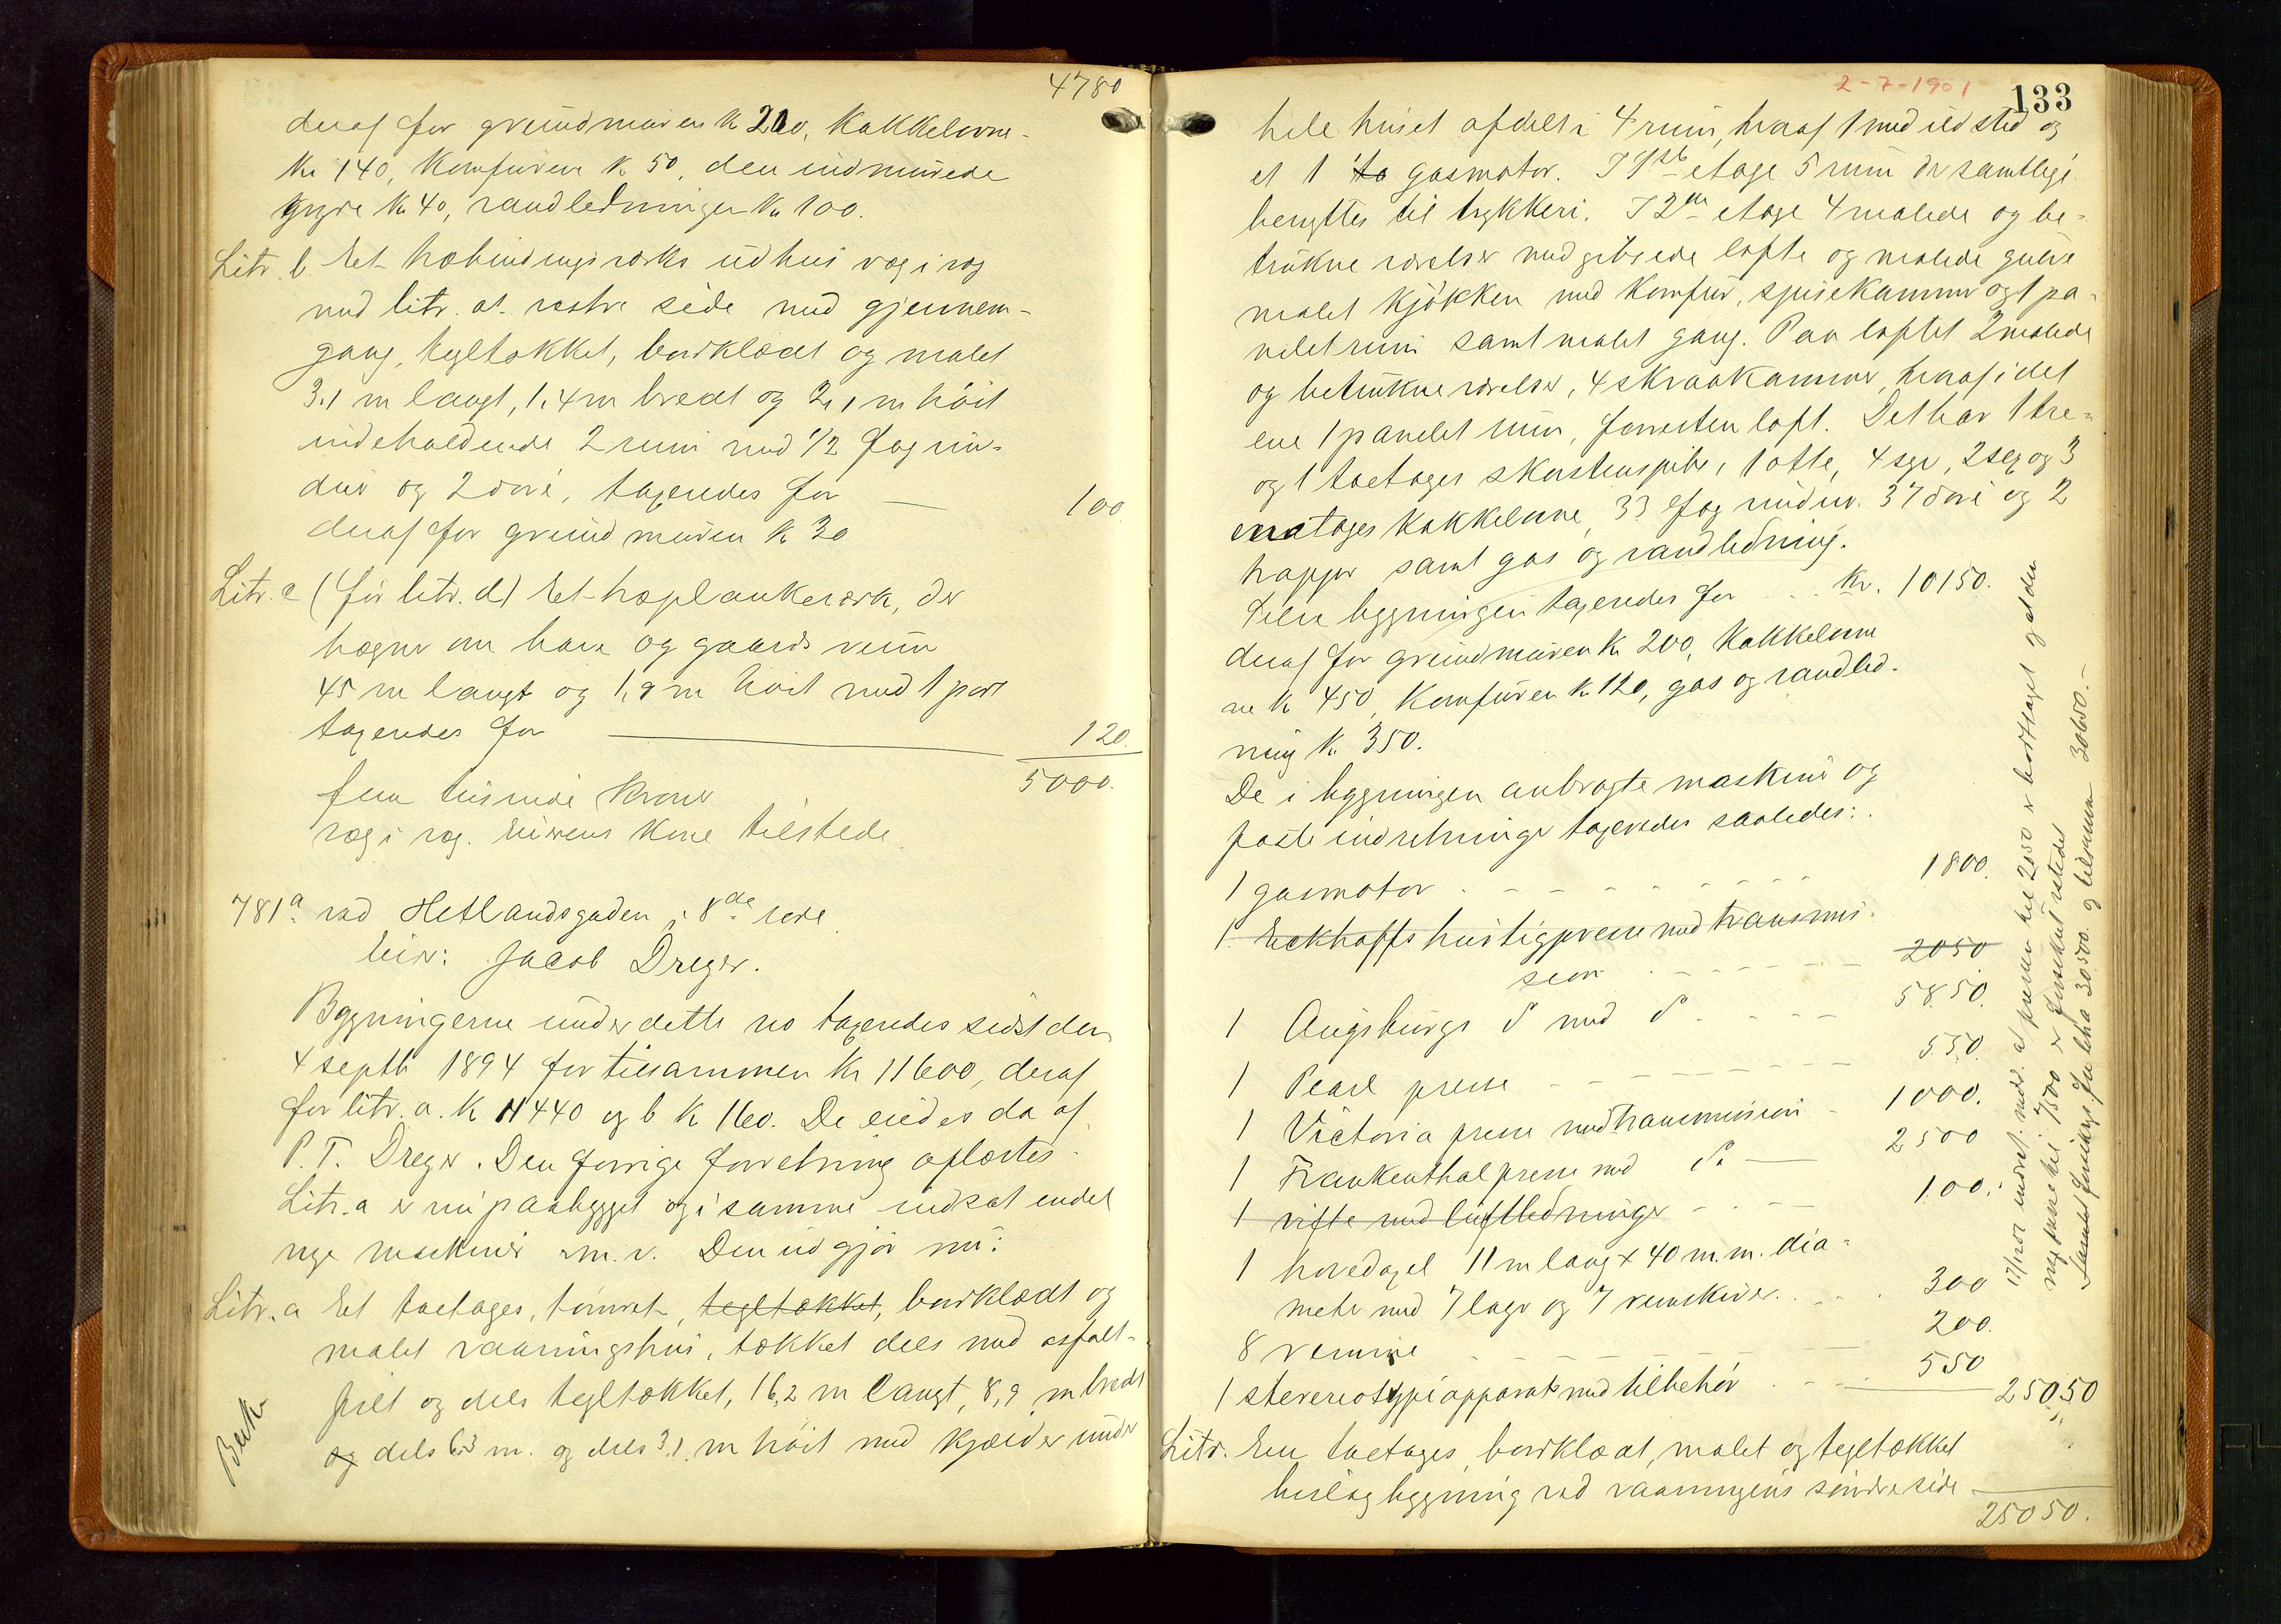 4780
deraf for grundmuren k 210, kakkelovne-
kr 140, komfuren k 50, den indmurede
gryde kr 40, vandledningen kr 100.
Litr. b. Et træbindingsværks udhus væg i væg
med litr. a's vestre side med gjennem-
gang, tegltækket, bordklædt og malet
3.1 m langt, 1.4 m bredt og 2,1 m höit
indeholdende 2 rum med 1/2 fag vin-
duer og 2 döre, taxeredes for — 100
deraf for grundmuren k 30
Litr. c (för litr. d) Et træplankeværk, der
hegner om have og gaardsrum
45 m langt og 1,9 m höit med 1 port
taxeredes for — 120.
5000.
fem tusinde kroner
væg i væg. Eierens kone tilstede.
781a. ved Hetlandsgaden i 8de rode
Eier: Jacob Dreyer.
Bygningerne under dette no taxeredes sidst den
4 septb 1894 for tilsammen kr 11600, deraf
for litr. a. k 11440 og b k 160. De eiedes da af
P. T. Dreyer. Den forrige forretning oplæstes.
Litr. a er nu paabygget og i samme indsat endel
nye maskiner m. v. Den udgjør nu:
Litr. a Et toetages, tömret, tegltækket, bordklædt og
malet vaaningshus, tækket dels med asfalt-
filt og dels tegltækket, 16,2 m langt, 8,9 m bredt
og dels 6.3 m. og dels 3.1. m höit med kjælder under
2-7-1901
133
hele huset afdelt i 4 rum, hvoraf 1 med ildsted og
et 1 to gasmotor. I 1ste etage 5 rum der samtlige
benyttes til trykkeri. I 2den etage 4 malede og be-
trukne værelser med gibsede lofte og malede gulve
malet kjökken med komfur, spisekammer og 1 pa-
nelet rum samt malet gang. Paa loftet 2 malede
og betrukne værelser, 4 skraakammer, hvoraf i det
ene 1 panelet rum, forresten loft. Det har 1 tre-
og 1 toetages skorstenspibe, 1 otte, 4 syv, 2 sex og 3
enetages kakkelovne, 33 fag vinduer. 37 döre og 2
trapper samt gas og vandledning.
Selve bygningen taxeredes for . . . kr. 10150.
deraf for grundmuren kr 200, kakkelovne
ne k 450, komfuren kr 120, gas og vandled-
ning k. 350.
De i bygningen anbragte maskiner og
faste indretninger taxeredes saaledes:
1 gasmotor . . . 1800.
1 Eickhoffs hurtigpresse med transmis-
sion . . . 2050
1 Augsburgs d° med d° . . . 5850.
1 Pearl presse . . . 550.
1 Victoria presse med transmission - 1000.
1 Frankenthal presse med d°. — 2500
1 vifte med luftledninger . . . 100.
1 hovedaxel 11 m lang x 40 m.m. dia-
meter med 7 lagre og 7 remskiver. . . . 300
8 remme . . . 200.
1 stereotypiapparat med tilbehör . . . 550
25050
Litr. En toetages, bordklædt, malet og tegltækket
bislagbygning ved vaaningens söndre side
25050.